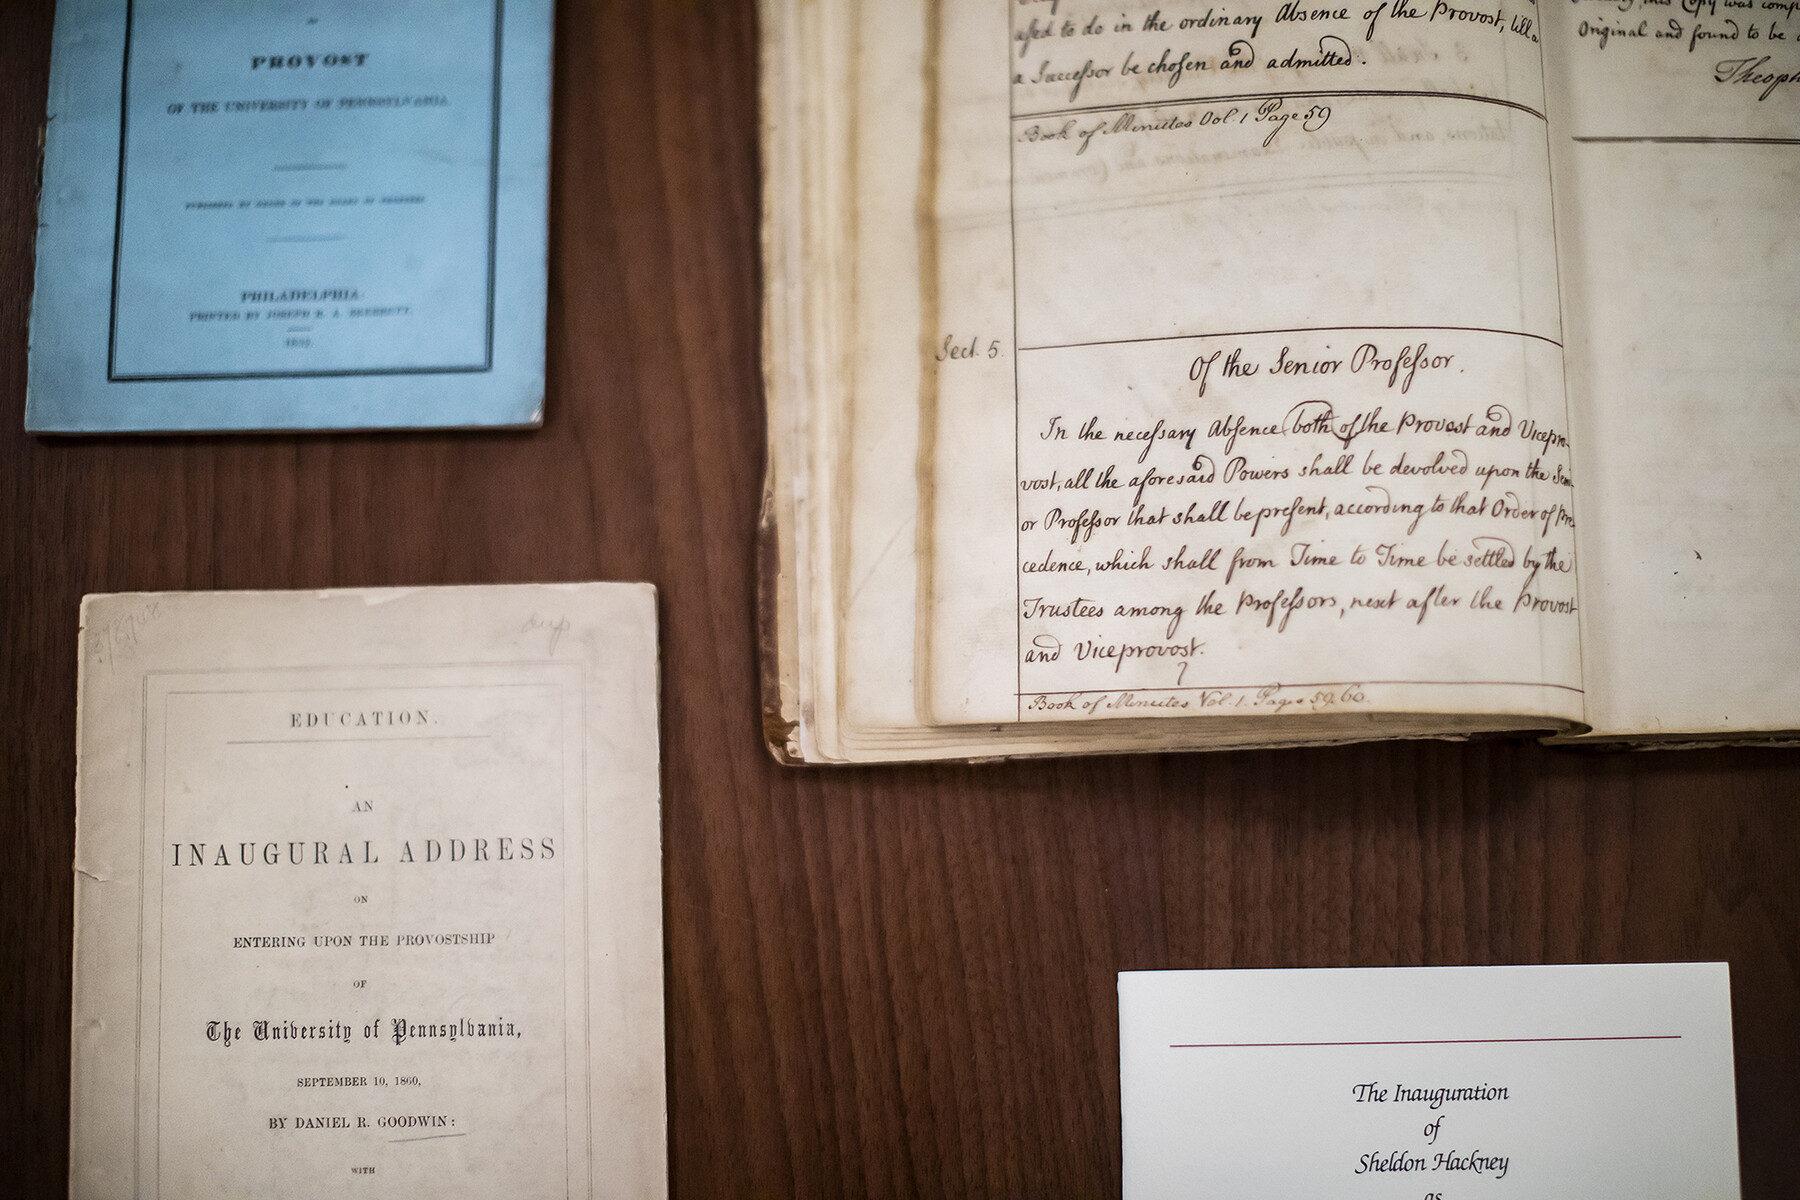 PROVOST
OF THE UNIVERSITY OF PENNSYLVANIA
PUBLISHED BY ORDER OF THE BOARD OF TRUSTEES
PHILADELPHIA:
PRINTED BY JOSEPH R. A. SKERRETT.
ased to do in the ordinary Absence of the Provost, till
a Successor be chosen and admitted.
Book of Minutes Vol. 1 Page 59
Sect. 5.
Of the Senior Professor.
In the necessary Absence both of the Provost and Vicepro-
vost, all the aforesaid Powers shall be devolved upon the Seni
or Professor that shall be present, according to that Order of Pre
cedence, which shall from Time to Time be settled by the
Trustees among the Professors, next after the Provost
and Viceprovost.
Book of Minutes Vol. 1. Pages 59, 60.
this Copy was comp
Original and found to be
Theoph
EDUCATION.
AN
INAUGURAL ADDRESS
ON
ENTERING UPON THE PROVOSTSHIP
OF
The University of Pennsylvania,
SEPTEMBER 10, 1860,
BY DANIEL R. GOODWIN:
WITH
The Inauguration
of
Sheldon Hackney
as